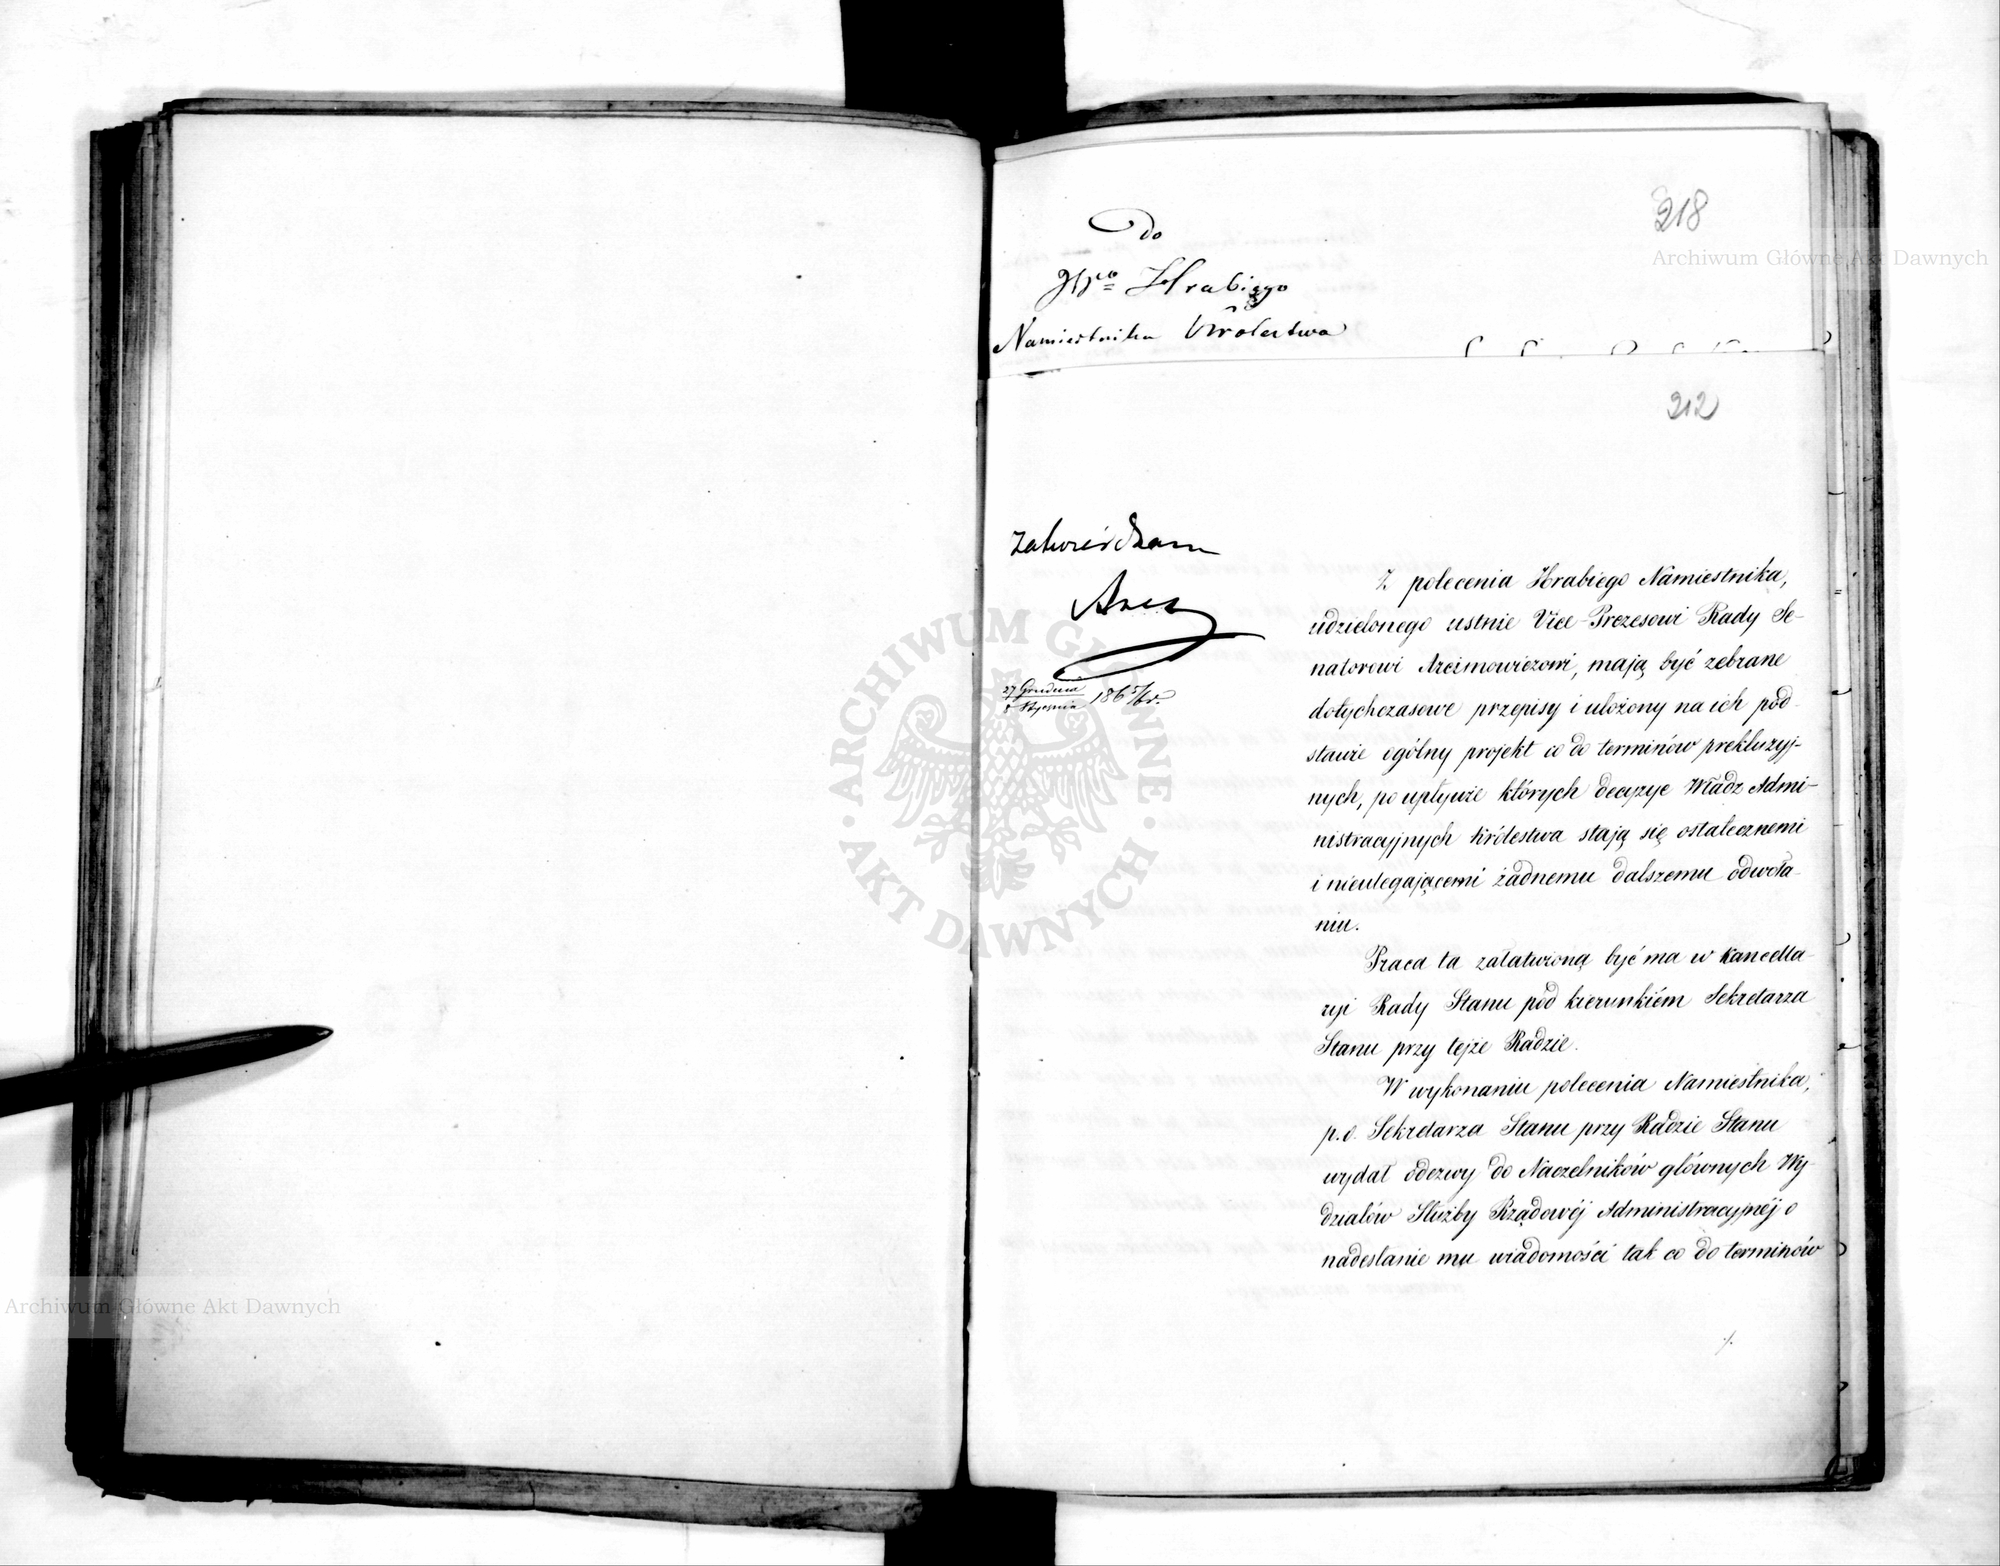 218
Do
JW<sup>o</sup> Hrabiego
Namiestnika Królestwa
212
Zatwierdzam
Arcz
27 Grudnia
8 Stycznia 1865/6 r.
Z polecenia Hrabiego Namiestnika,
udzielonego ustnie Vice-Prezesowi Rady Se-
natorowi Arcimowiczowi, mają być zebrane
dotychczasowe przepisy i ułożony na ich pod-
stawie ogólny projekt co do terminów prekluzyj-
nych, po upływie których decyzye Władz Admi-
nistracyjnych Królestwa stają się ostatecznemi
i nieulegającemi żadnemu dalszemu odwoła-
niu.
Praca ta załatwioną być ma w Kancella-
ryi Rady Stanu pod kierunkiém Sekretarza
Stanu przy tejże Radzie.
W wykonaniu polecenia Namiestnika,
p.o. Sekretarza Stanu przy Radzie Stanu
wydał odezwy do Naczelników głównych Wy-
działów Służby Rządowéj Administracyjnéj o
nadesłanie mu wiadomości tak co do terminów
./.
ARCHIWUM GŁÓWNE AKT DAWNYCH
Archiwum Główne Akt Dawnych
Archiwum Główne Akt Dawnych